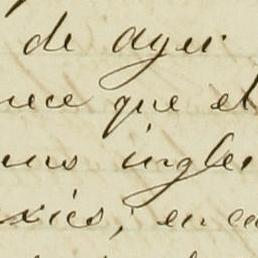 de ayer
nece que el
uns ingles
exico; en ca